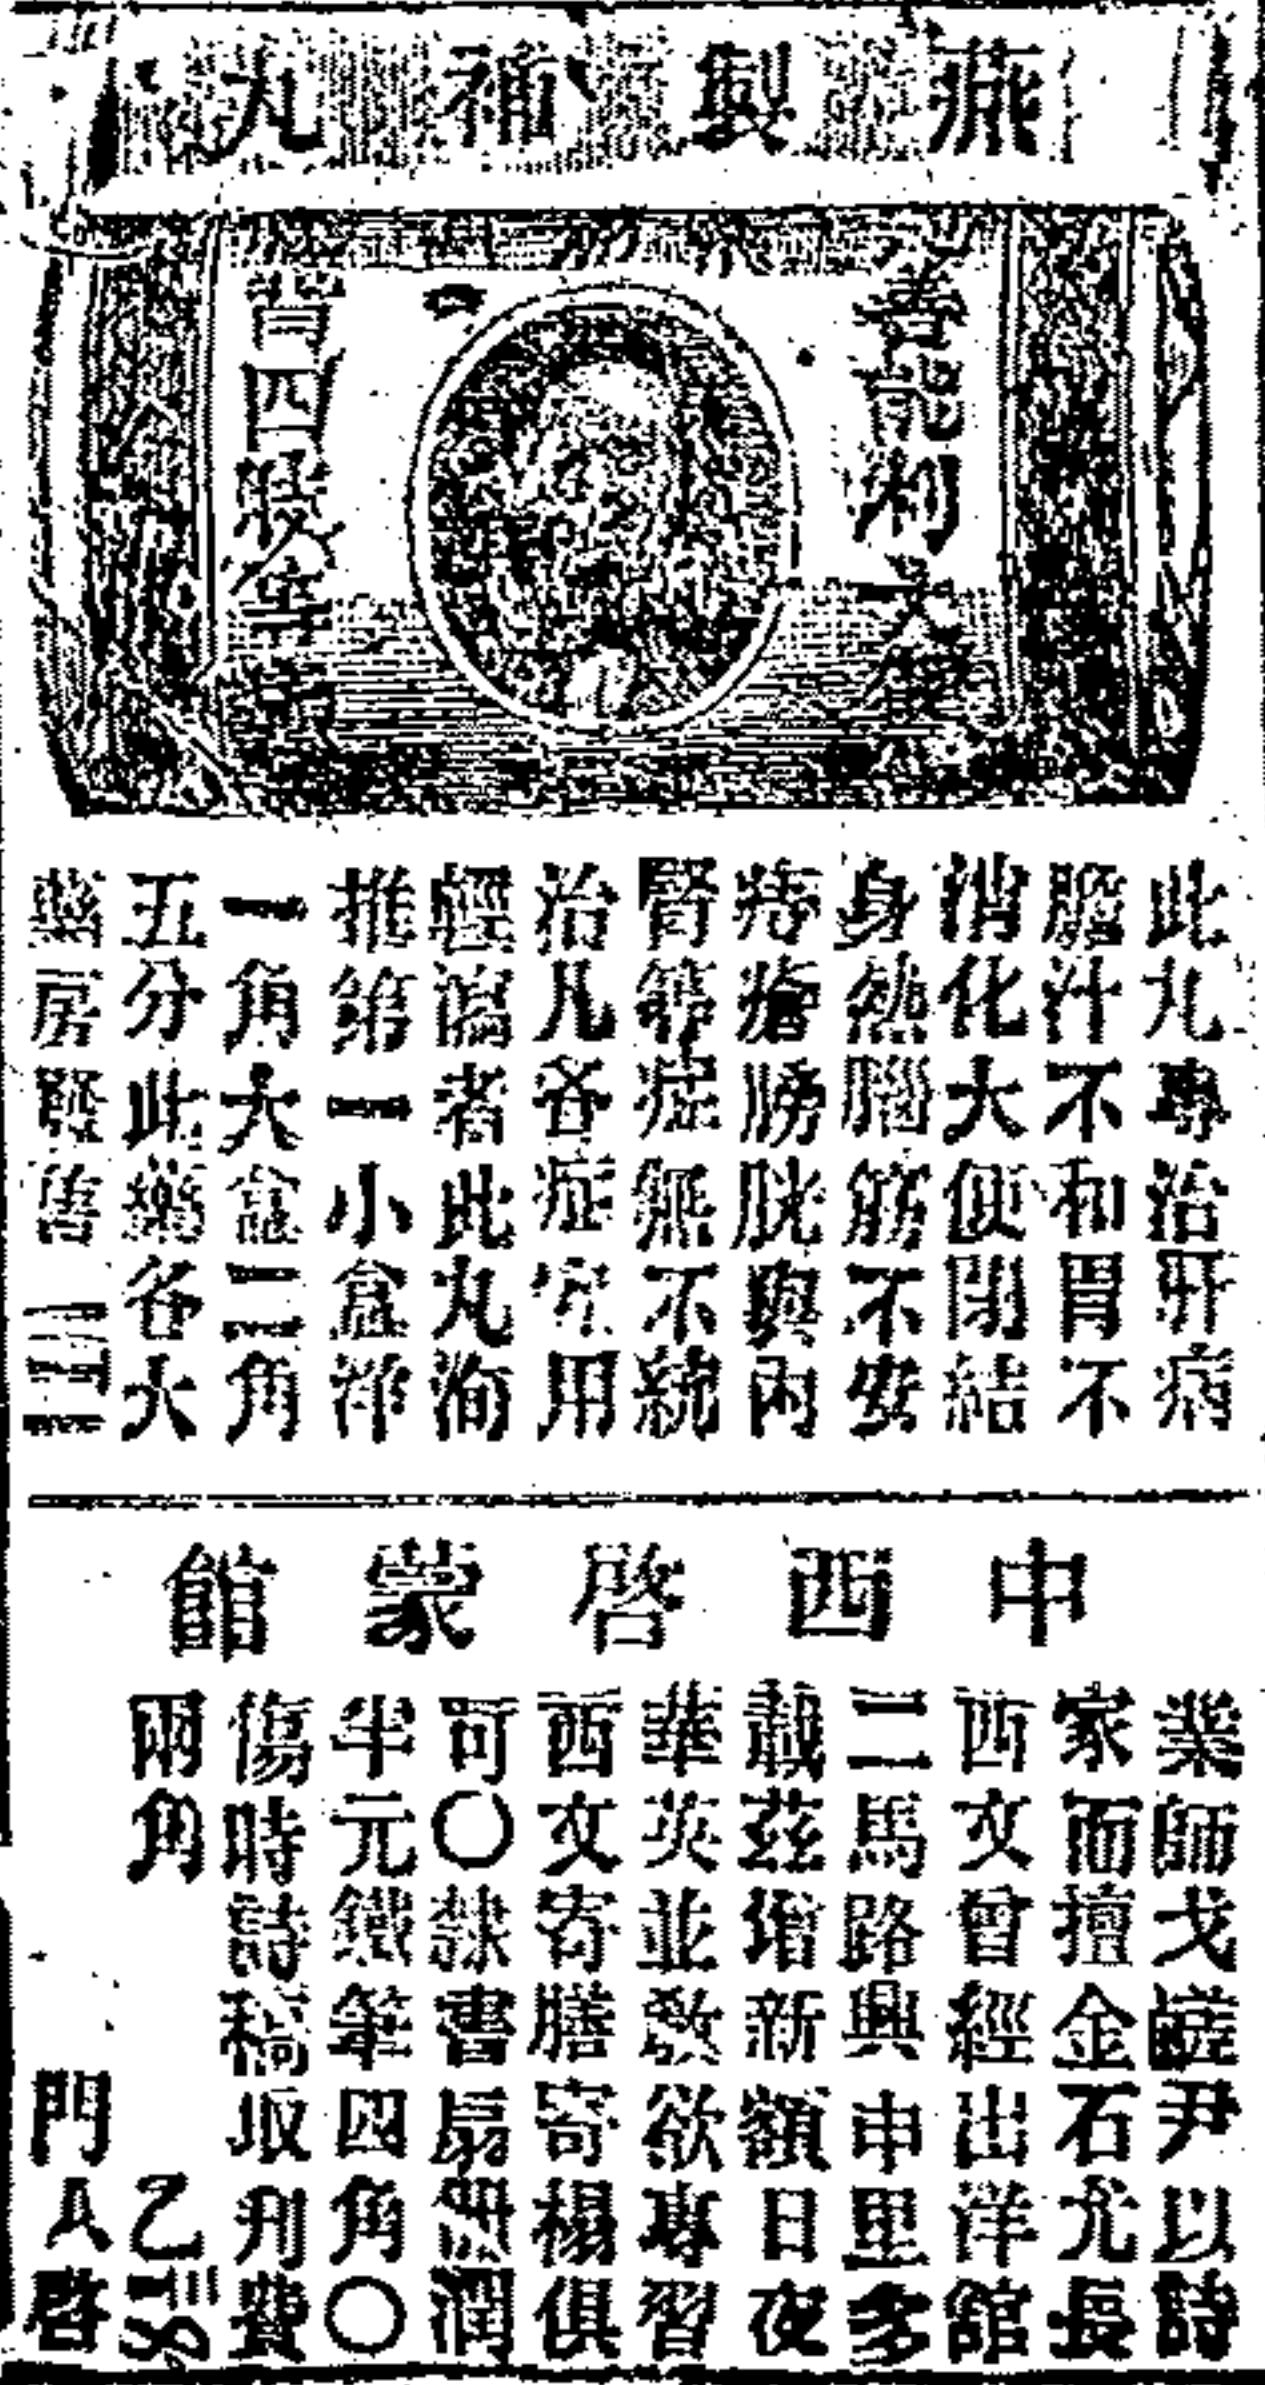 燕製補丸
此丸專治肝病
膽汁不和胃不
消化大便閉結
身熱腦筋不安
痔瘡膀胱與內
腎等症無不統
治凡各症宜用
輕瀉者此丸洵
推第一小盒洋
一角大盒二角
五分此藥各大
藥房發售
中西啓蒙館
業師戈鹺尹以詩
家而擅金石尤長
西文曾經出洋館
二馬路興申里多
載茲增新額日夜
華英並教欲專習
西文寄膳寄楊俱
可〇隸書扇潤
半元鐵筆四角〇
傷時詩稿取刋費
兩角
門人啓